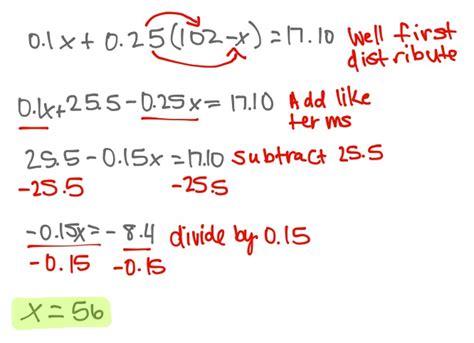 0.1x + 0.25(102-x) = 17.10 Well first
distribute
0.1x+25.5-0.25x = 17.10 Add like
terms
25.5-0.15x = 17.10 subtract 25.5
-25.5 -25.5
-0.15x = -8.4 divide by 0.15
-0.15 -0.15
x = 56